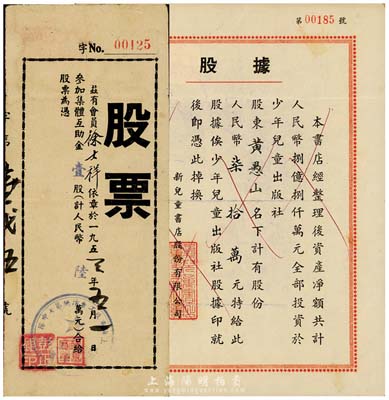 第 00185 號
股據
本書店經整理後資產淨額共計
人民幣捌億捌仟萬元全部投資於
少年兒童出版社
股東黃愚山名下計有股份
人民幣柒拾萬元特給此
股據俟少年兒童出版社股據印就
後即憑此掉換
新兒童書店股份有限公司
字No. 00125
股票
茲有會員徐士祥依章於一九五 年五月一日
參加集體互助金壹股(計人民幣陸萬元)合給
股票為憑
上海陽明拍賣
www.ymauction.com